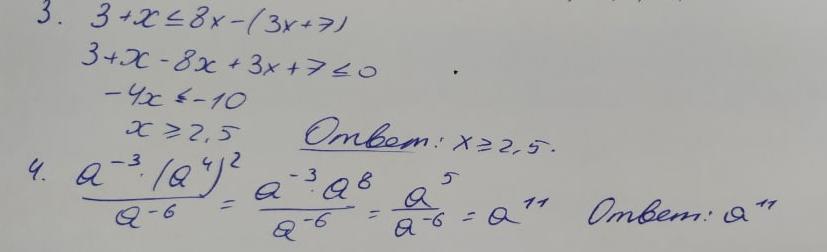 3. 3+x≤8x-(3x+7)
3+x-8x+3x+7≤0
-4x≤-10
x≥2,5 Ответ: x≥2,5.
4. a⁻³·(a⁴)²/a⁻⁶ = a⁻³·a⁸/a⁻⁶ = a⁵/a⁻⁶ = a¹¹ Ответ: a¹¹